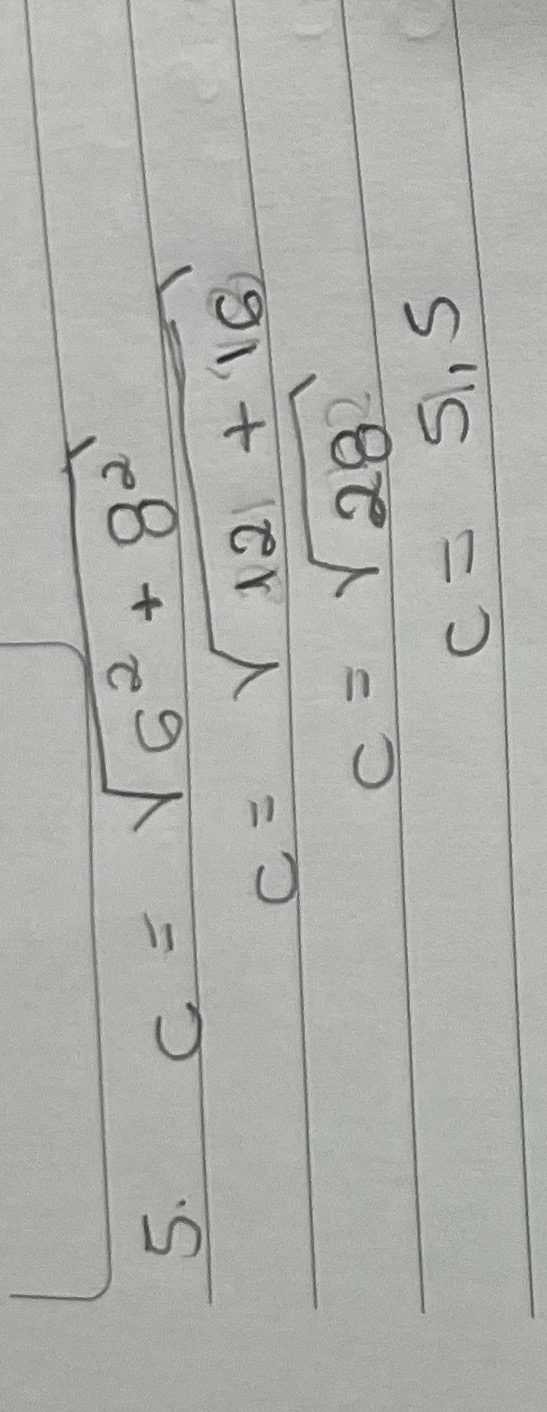 5. c = √6² + 8²
c = √12 + 16
c = √28
c = 5,5